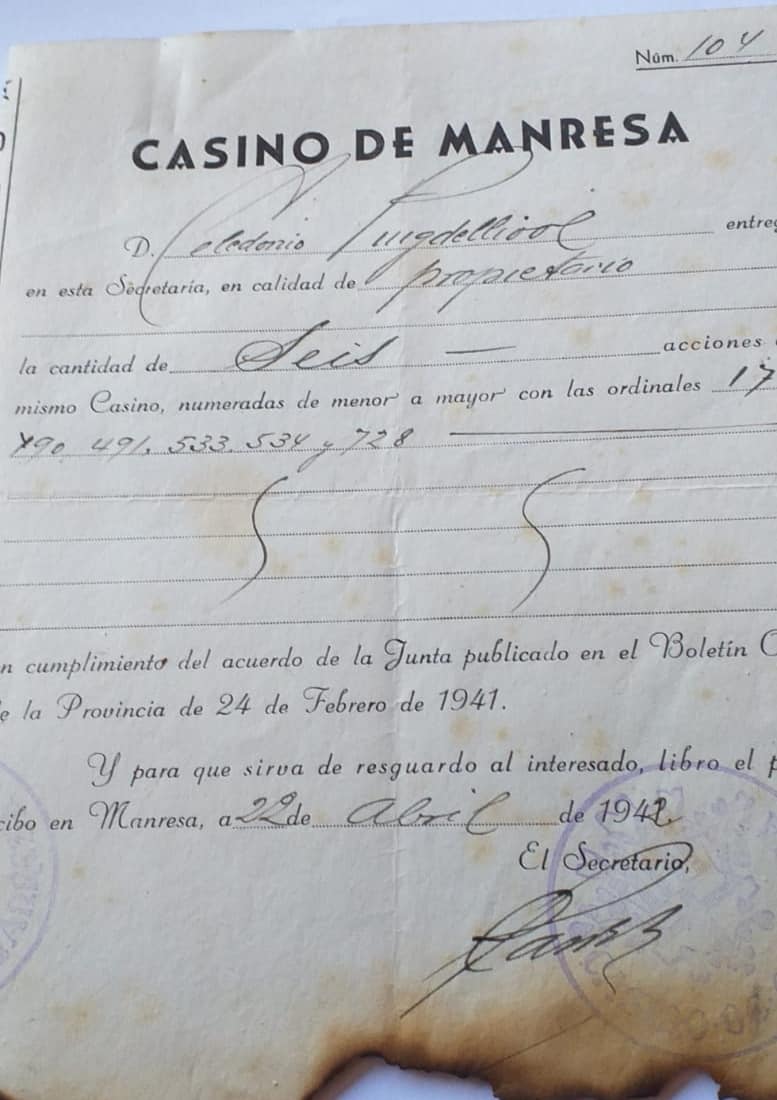 Núm. 104
CASINO DE MANRESA
D. Celedonio Puigdellivol entreg
en esta Secretaría, en calidad de propietario
la cantidad de Seis — acciones
mismo Casino, numeradas de menor a mayor con las ordinales 17
490, 491, 533, 534 y 728
n cumplimiento del acuerdo de la Junta publicado en el Boletín O
e la Provincia de 24 de Febrero de 1941.
Y para que sirva de resguardo al interesado, libro el p
cibo en Manresa, a 22 de Abril de 1942.
El Secretario,